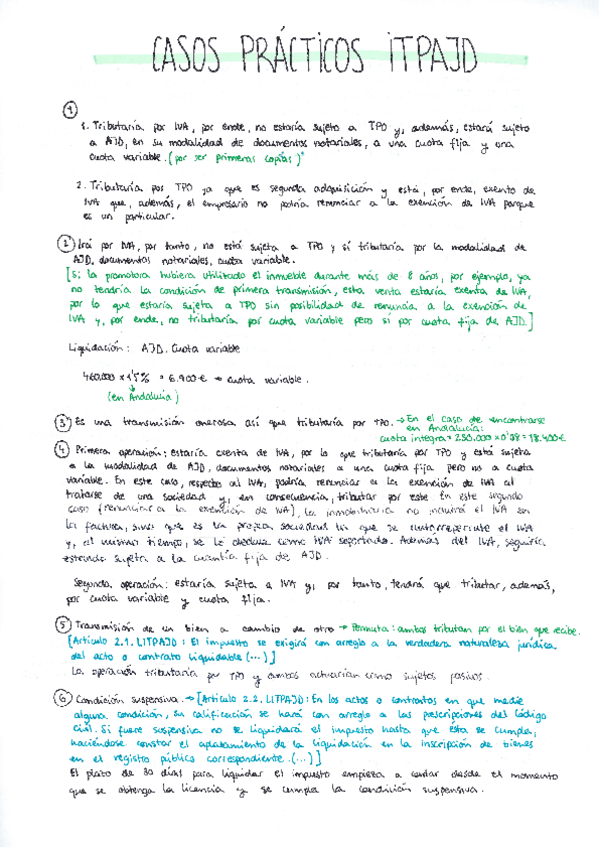 CASOS PRÁCTICOS ITPAJD
1
1. Tributaría por IVA, por ende, no estaría sujeto a TPO y, además, estará sujeto
a AJD, en su modalidad de documentos notariales, a una cuota fija y una
cuota variable. (por ser primeras copias)
2. Tributaría por TPO ya que es segunda adquisición y está, por ende, exento de
IVA que, además, el empresario no podría renunciar a la exención de IVA porque
es un particular.
2 Irá por IVA, por tanto, no está sujeta a TPO y sí tributaría por la modalidad de
AJD, documentos notariales, cuota variable.
[Si la promotora hubiera utilizado el inmueble durante más de 8 años, por ejemplo, ya
no tendría la condición de primera transmisión, esta venta estaría exenta de IVA,
por lo que estaría sujeta a TPO sin posibilidad de renuncia a la exención de
IVA y, por ende, no tributaría por cuota variable pero sí por cuota fija de AJD.]
Liquidación: AJD. Cuota variable
460.000 x 1'5% = 6.900 € → cuota variable.
(en Andalucía)
3 Es una transmisión onerosa así que tributaría por TPO. → En el caso de encontrarse
en Andalucía:
cuota íntegra = 230.000 x 0'08 = 18.400 €
4 Primera operación: estaría exenta de IVA, por lo que tributaría por TPO y está sujeta
a la modalidad de AJD, documentos notariales a una cuota fija pero no a cuota
variable. En este caso, respecto al IVA, podría renunciar a la exención de IVA al
tratarse de una sociedad y, en consecuencia, tributar por este. En este segundo
caso (renunciar a la exención de IVA), la inmobiliaria no incluirá el IVA en
la factura, sino que es la propia sociedad la que se autorrepercute el IVA
y, al mismo tiempo, se lo deduce como IVA soportado. Además del IVA, seguiría
estando sujeta a la cuantía fija de AJD.
Segunda operación: estaría sujeta a IVA y, por tanto, tendrá que tributar, además,
por cuota variable y cuota fija.
5 Transmisión de un bien a cambio de otro → Permuta: ambos tributan por el bien que recibe.
[Artículo 2.1. LITPAJD: El impuesto se exigirá con arreglo a la verdadera naturaleza jurídica
del acto o contrato liquidable (...)]
La operación tributaría por TPO y ambos actuarían como sujetos pasivos.
6 Condición suspensiva. → [Artículo 2.2. LITPAJD: En los actos o contratos en que medie
alguna condición, su calificación se hará con arreglo a las prescripciones del Código
civil. Si fuere suspensiva no se liquidará el impuesto hasta que ésta se cumpla,
haciéndose constar el aplazamiento de la liquidación en la inscripción de bienes
en el registro público correspondiente. (...)]
El plazo de 30 días para liquidar el impuesto empieza a contar desde el momento
que se obtenga la licencia y se cumpla la condición suspensiva.